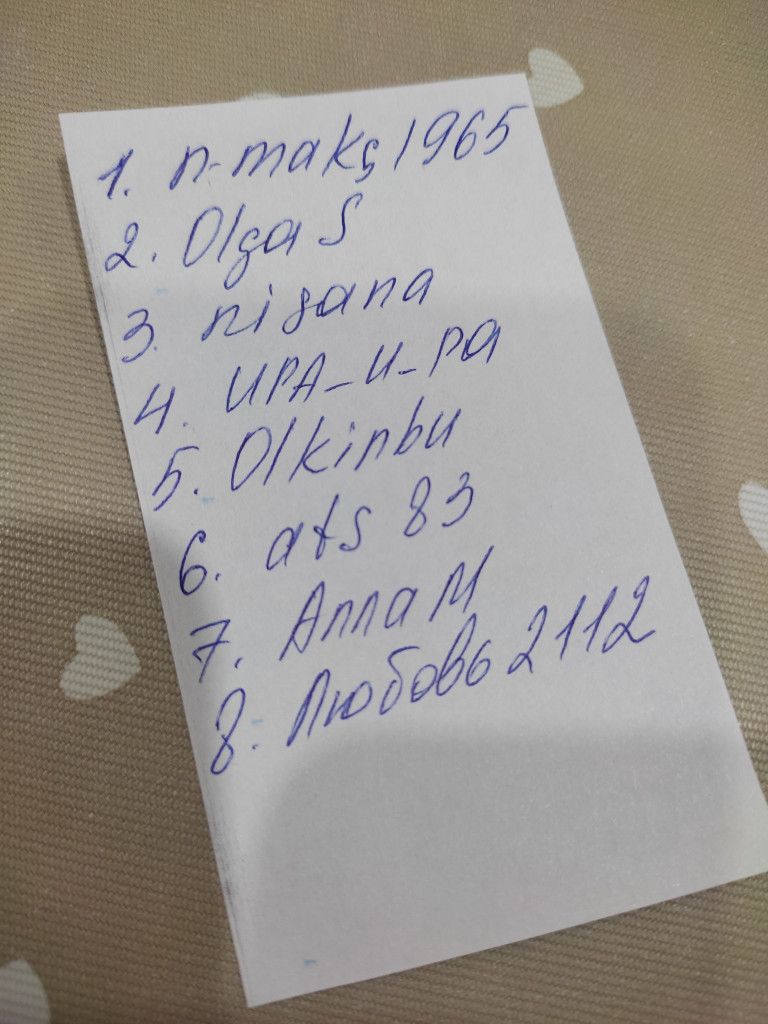 1. n-maks1965
2. Olga S
3. nigana
4. ИРА-и-ра
5. Olkinbu
6. ats 83
7. Алла М
8. Любовь 2112